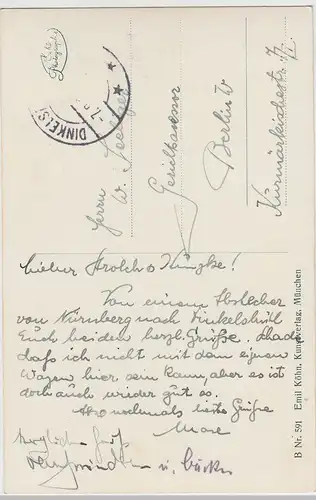 DINKELS
Herrn
W.
Gerichtsassessor
Berlin W
Kurmärkischestr.
Lieber Strolch u
Von einem Abstecher
von Nürnberg nach Dinkelsbühl
Euch beiden herzl. Grüße. Schade
daß ich nicht mit dem eigenen
Wagen hier sein kann, aber es ist
doch auch wieder gut so.
Also nochmals beste Grüße
herzlichen Gruß
u.
B Nr. 591 Emil Köhn, Kunstverlag, München